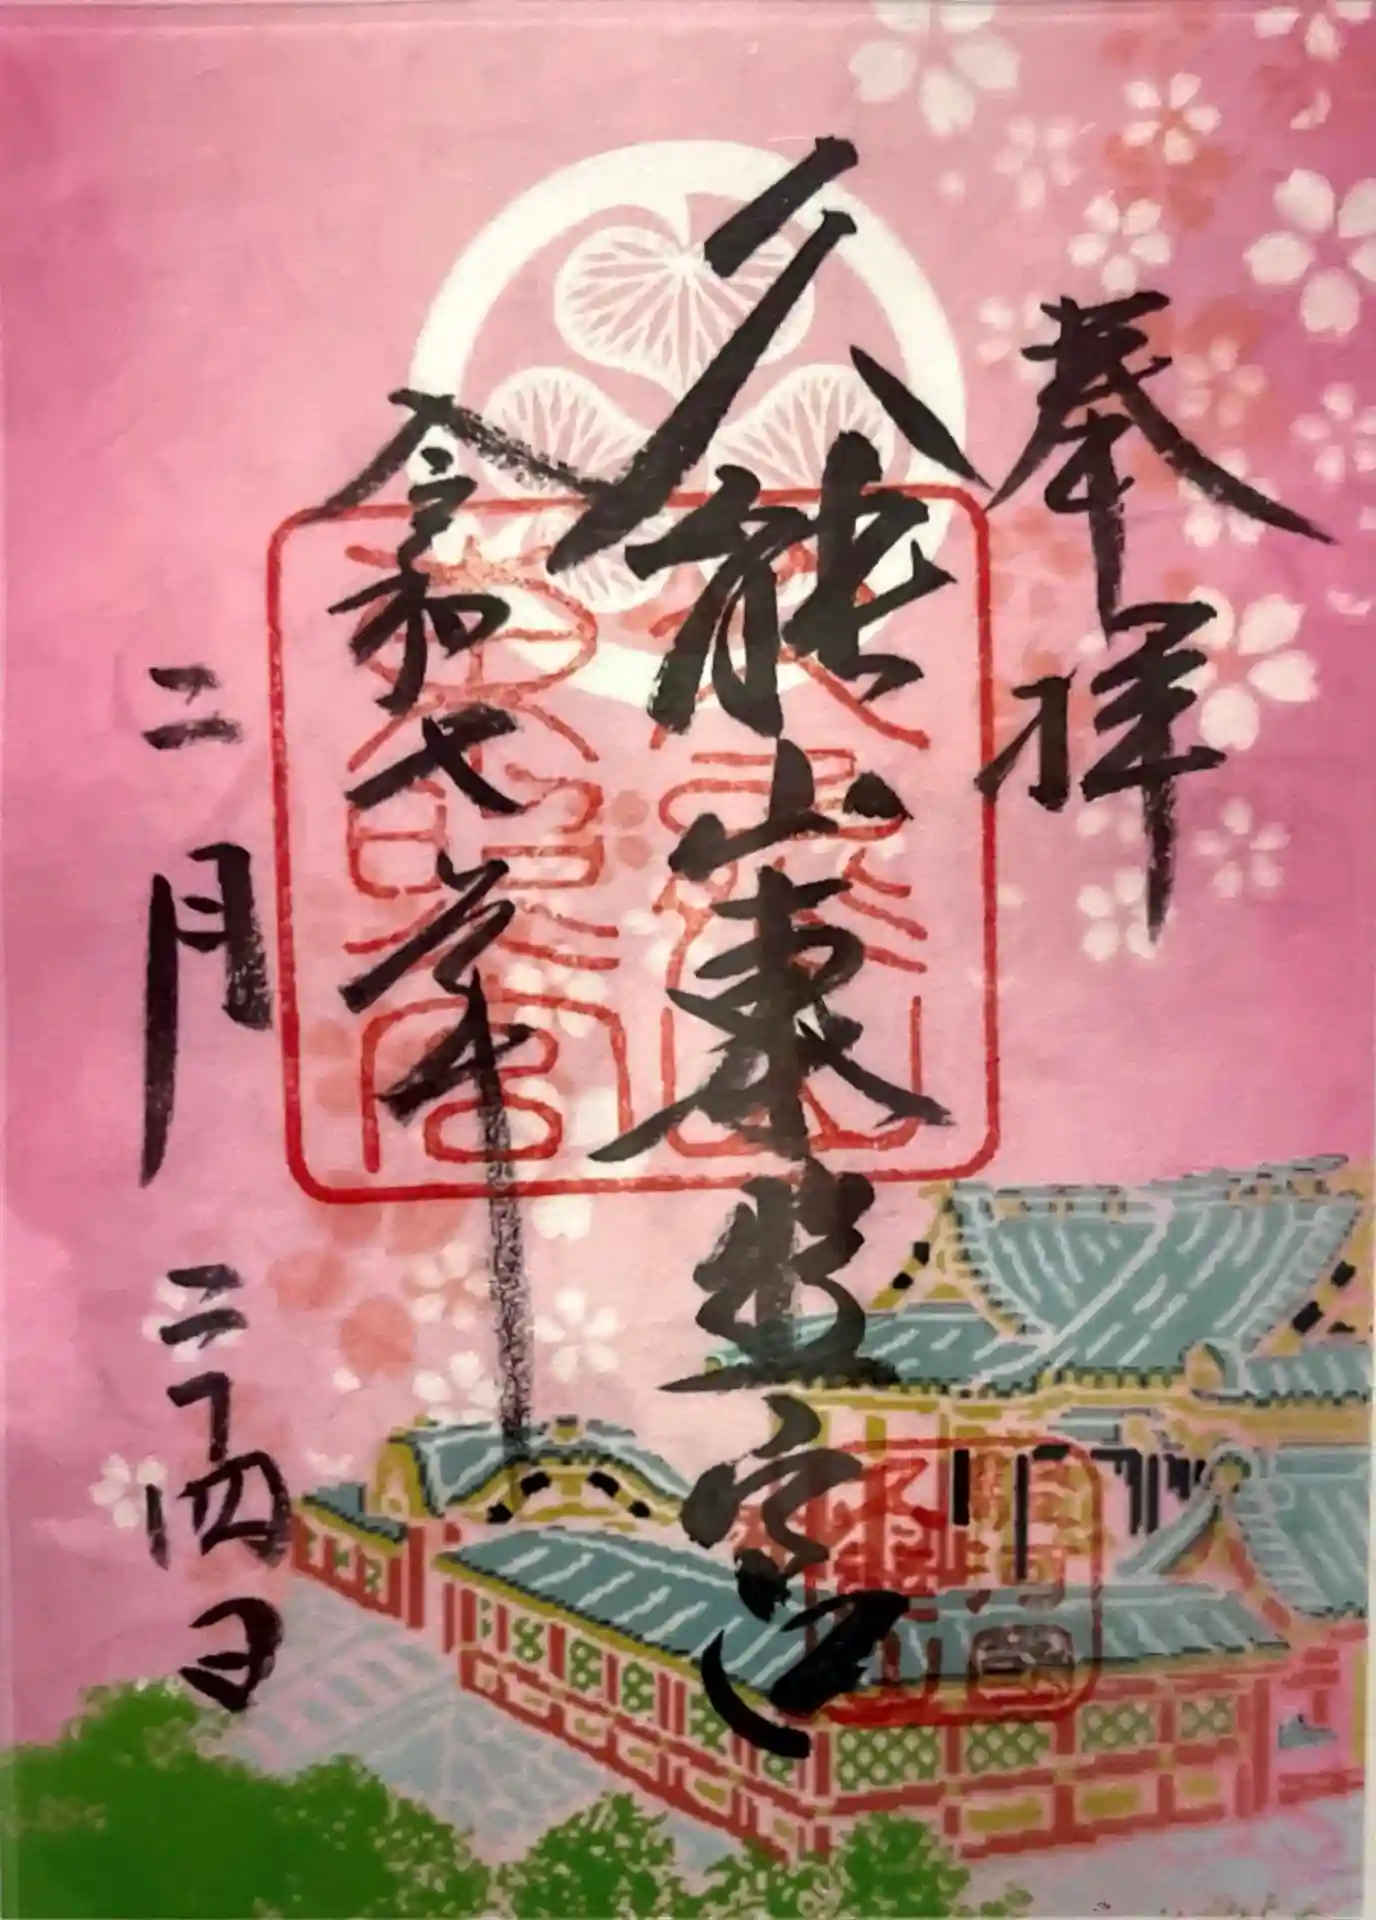 奉拝
久能山東照宮
令和七年
二月二十四日
久能山
東照宮
駿河國
久能山